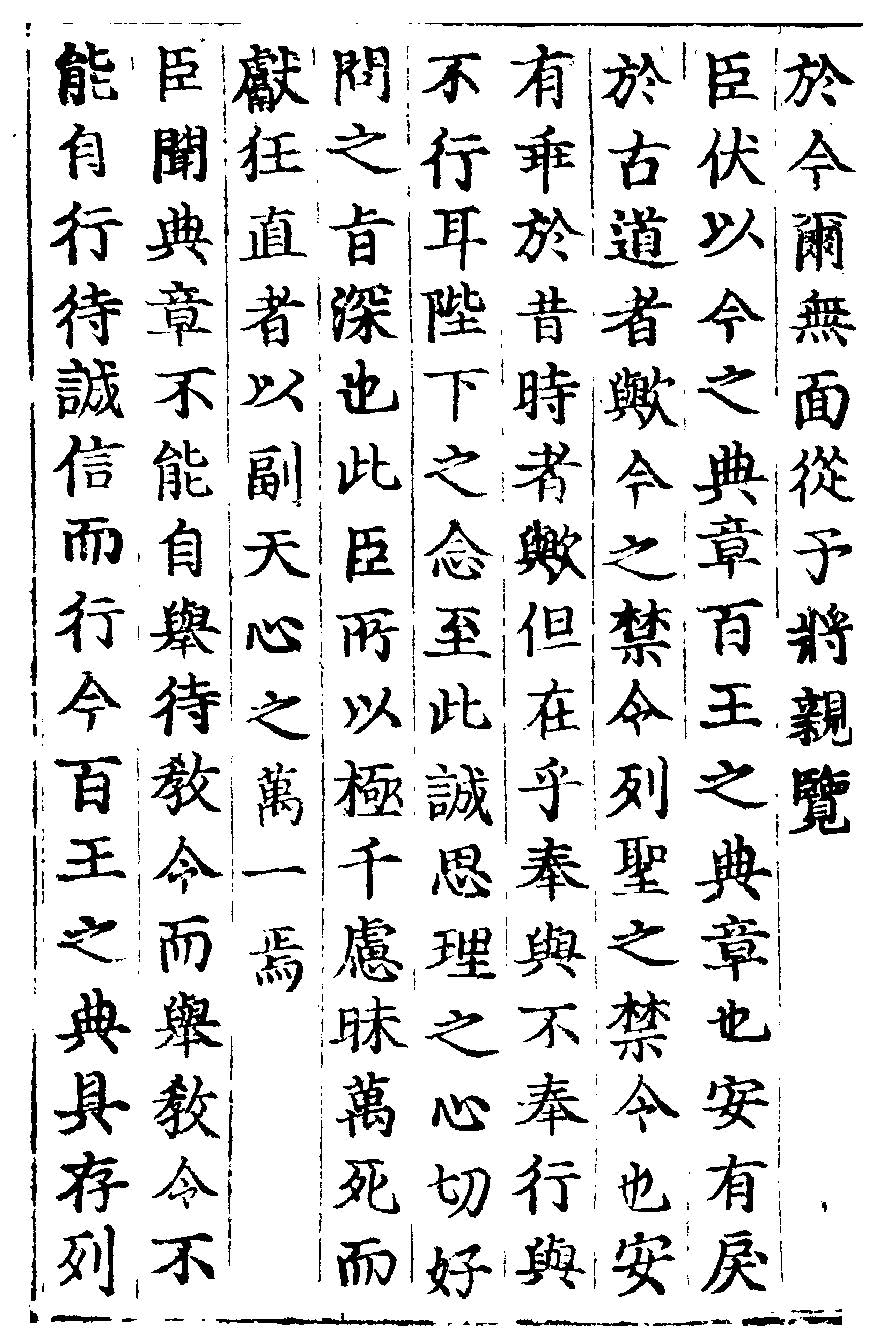 於今爾無面從予將親覽
臣伏以今之典章百王之典章也安有戾
於古道者歟今之禁令列聖之禁令也安
有乖於昔時者歟但在乎奉與不奉行與
不行耳陛下之念至此誠思理之心切好
問之旨深也此臣所以極千慮昧萬死而
獻狂直者以副天心之萬一焉
臣聞典章不能自舉待教令而舉教令不
能自行待誠信而行今百王之典具存列